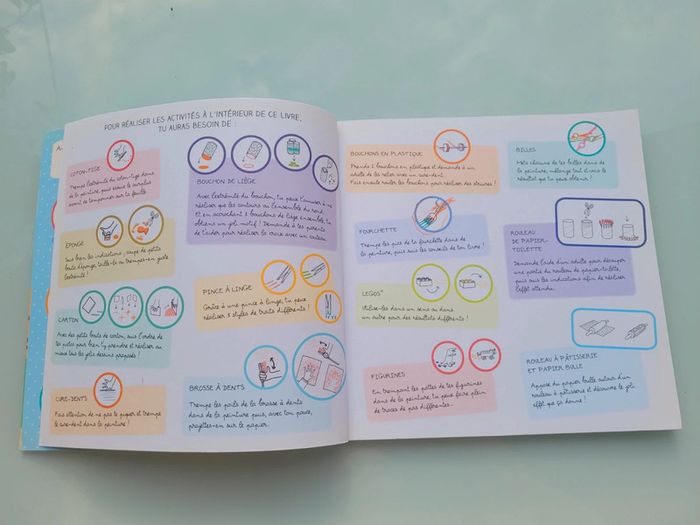 POUR RÉALISER LES ACTIVITÉS À L'INTÉRIEUR DE CE LIVRE,
TU AURAS BESOIN DE :
COTON-TIGE
Trempe l'extrémité du coton-tige dans
de la peinture, puis essuie le surplus
avant de tamponner sur ta feuille.
ÉPONGE
Suis bien les indications, coupe de petits
bouts d'éponge, taille-la ou trempes-en juste
l'extrémité !
CARTON
Avec des petits bouts de carton, suis l'ordre de
les pistes pour bien t'y prendre et réaliser au
mieux tous les jolis dessins proposés !
CURE-DENTS
Fais attention de ne pas te piquer et trempe
le cure-dent dans la peinture !
BOUCHON DE LIÈGE
Avec l'extrémité du bouchon, tu peux t'amuser à ne
réaliser que les contours ou l'ensemble du rond.
Et en accrochant 3 bouchons de liège ensemble, tu
obtiens un joli motif ! Demande à tes parents
de t'aider pour réaliser la croix avec un cutter.
PINCE À LINGE
Grâce à une pince à linge, tu peux
réaliser 3 styles de traits différents !
BROSSE À DENTS
Trempe les poils de la brosse à dents
dans de la peinture puis, avec ton pouce,
projettes-en sur le papier.
BOUCHONS EN PLASTIQUE
Prends 2 bouchons en plastique et demande à un
adulte de les relier avec un cure-dent.
Fais ensuite rouler les bouchons pour réaliser des rayures !
FOURCHETTE
Trempe les pics de ta fourchette dans de
la peinture, puis suis les conseils de ton livre !
LEGOS®
Utilise-les dans un sens ou dans
un autre pour des résultats différents !
FIGURINES
En trempant les pattes de tes figurines
dans de la peinture, tu peux faire plein
de traces de pas différentes...
BILLES
Mets chacune de tes billes dans de
la peinture, mélange tout et vois le
résultat que tu peux obtenir !
ROULEAU
DE PAPIER-
TOILETTE
Demande l'aide d'un adulte pour découper
une partie du rouleau de papier-toilette,
puis suis les indications afin de réaliser
l'effet attendu.
ROULEAU À PÂTISSERIE
ET PAPIER BULLE
Appose du papier bulle autour d'un
rouleau à pâtisserie et découvre le joli
effet que ça donne !